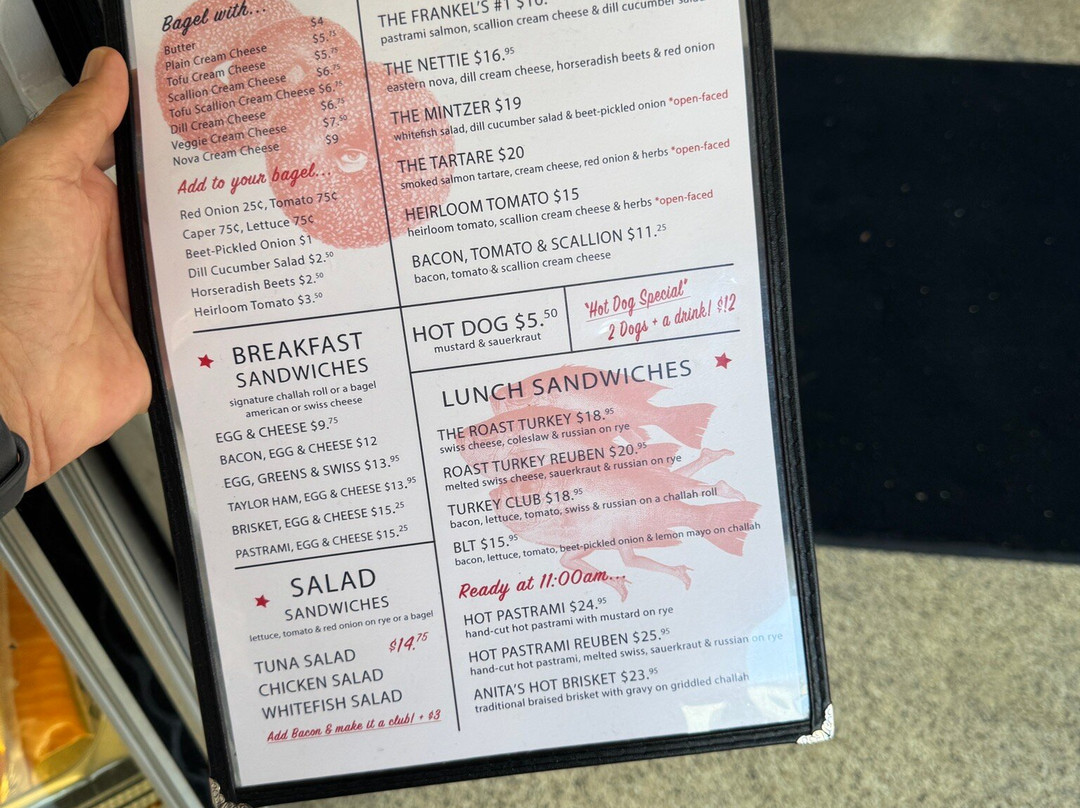 Bagel with...
Butter $4
Plain Cream Cheese $5.75
Tofu Cream Cheese $5.75
Scallion Cream Cheese $6.75
Tofu Scallion Cream Cheese $6.75
Dill Cream Cheese $6.75
Veggie Cream Cheese $7.50
Nova Cream Cheese $9
Add to your bagel...
Red Onion 25¢, Tomato 75¢
Caper 75¢, Lettuce 75¢
Beet-Pickled Onion $1
Dill Cucumber Salad $2.50
Horseradish Beets $2.50
Heirloom Tomato $3.50
THE FRANKEL'S #1
pastrami salmon, scallion cream cheese & dill cucumber salad
THE NETTIE $16.95
eastern nova, dill cream cheese, horseradish beets & red onion
THE MINTZER $19
whitefish salad, dill cucumber salad & beet-pickled onion *open-faced
THE TARTARE $20
smoked salmon tartare, cream cheese, red onion & herbs *open-faced
HEIRLOOM TOMATO $15
heirloom tomato, scallion cream cheese & herbs *open-faced
BACON, TOMATO & SCALLION $11.25
bacon, tomato & scallion cream cheese
HOT DOG $5.50
mustard & sauerkraut
"Hot Dog Special"
2 Dogs + a drink! $12
BREAKFAST
SANDWICHES
signature challah roll or a bagel
american or swiss cheese
EGG & CHEESE $9.75
BACON, EGG & CHEESE $12
EGG, GREENS & SWISS $13.95
TAYLOR HAM, EGG & CHEESE $13.95
BRISKET, EGG & CHEESE $15.25
PASTRAMI, EGG & CHEESE $15.25
SALAD
SANDWICHES
lettuce, tomato & red onion on rye or a bagel
$14.75
TUNA SALAD
CHICKEN SALAD
WHITEFISH SALAD
Add Bacon & make it a club! + $3
LUNCH SANDWICHES
THE ROAST TURKEY $18.95
swiss cheese, coleslaw & russian on rye
ROAST TURKEY REUBEN $20.95
melted swiss cheese, sauerkraut & russian on rye
TURKEY CLUB $18.95
bacon, lettuce, tomato, swiss & russian on a challah roll
BLT $15.95
bacon, lettuce, tomato, beet-pickled onion & lemon mayo on challah
Ready at 11:00am...
HOT PASTRAMI $24.95
hand-cut hot pastrami with mustard on rye
HOT PASTRAMI REUBEN $25.95
hand-cut hot pastrami, melted swiss, sauerkraut & russian on rye
ANITA'S HOT BRISKET $23.95
traditional braised brisket with gravy on griddled challah